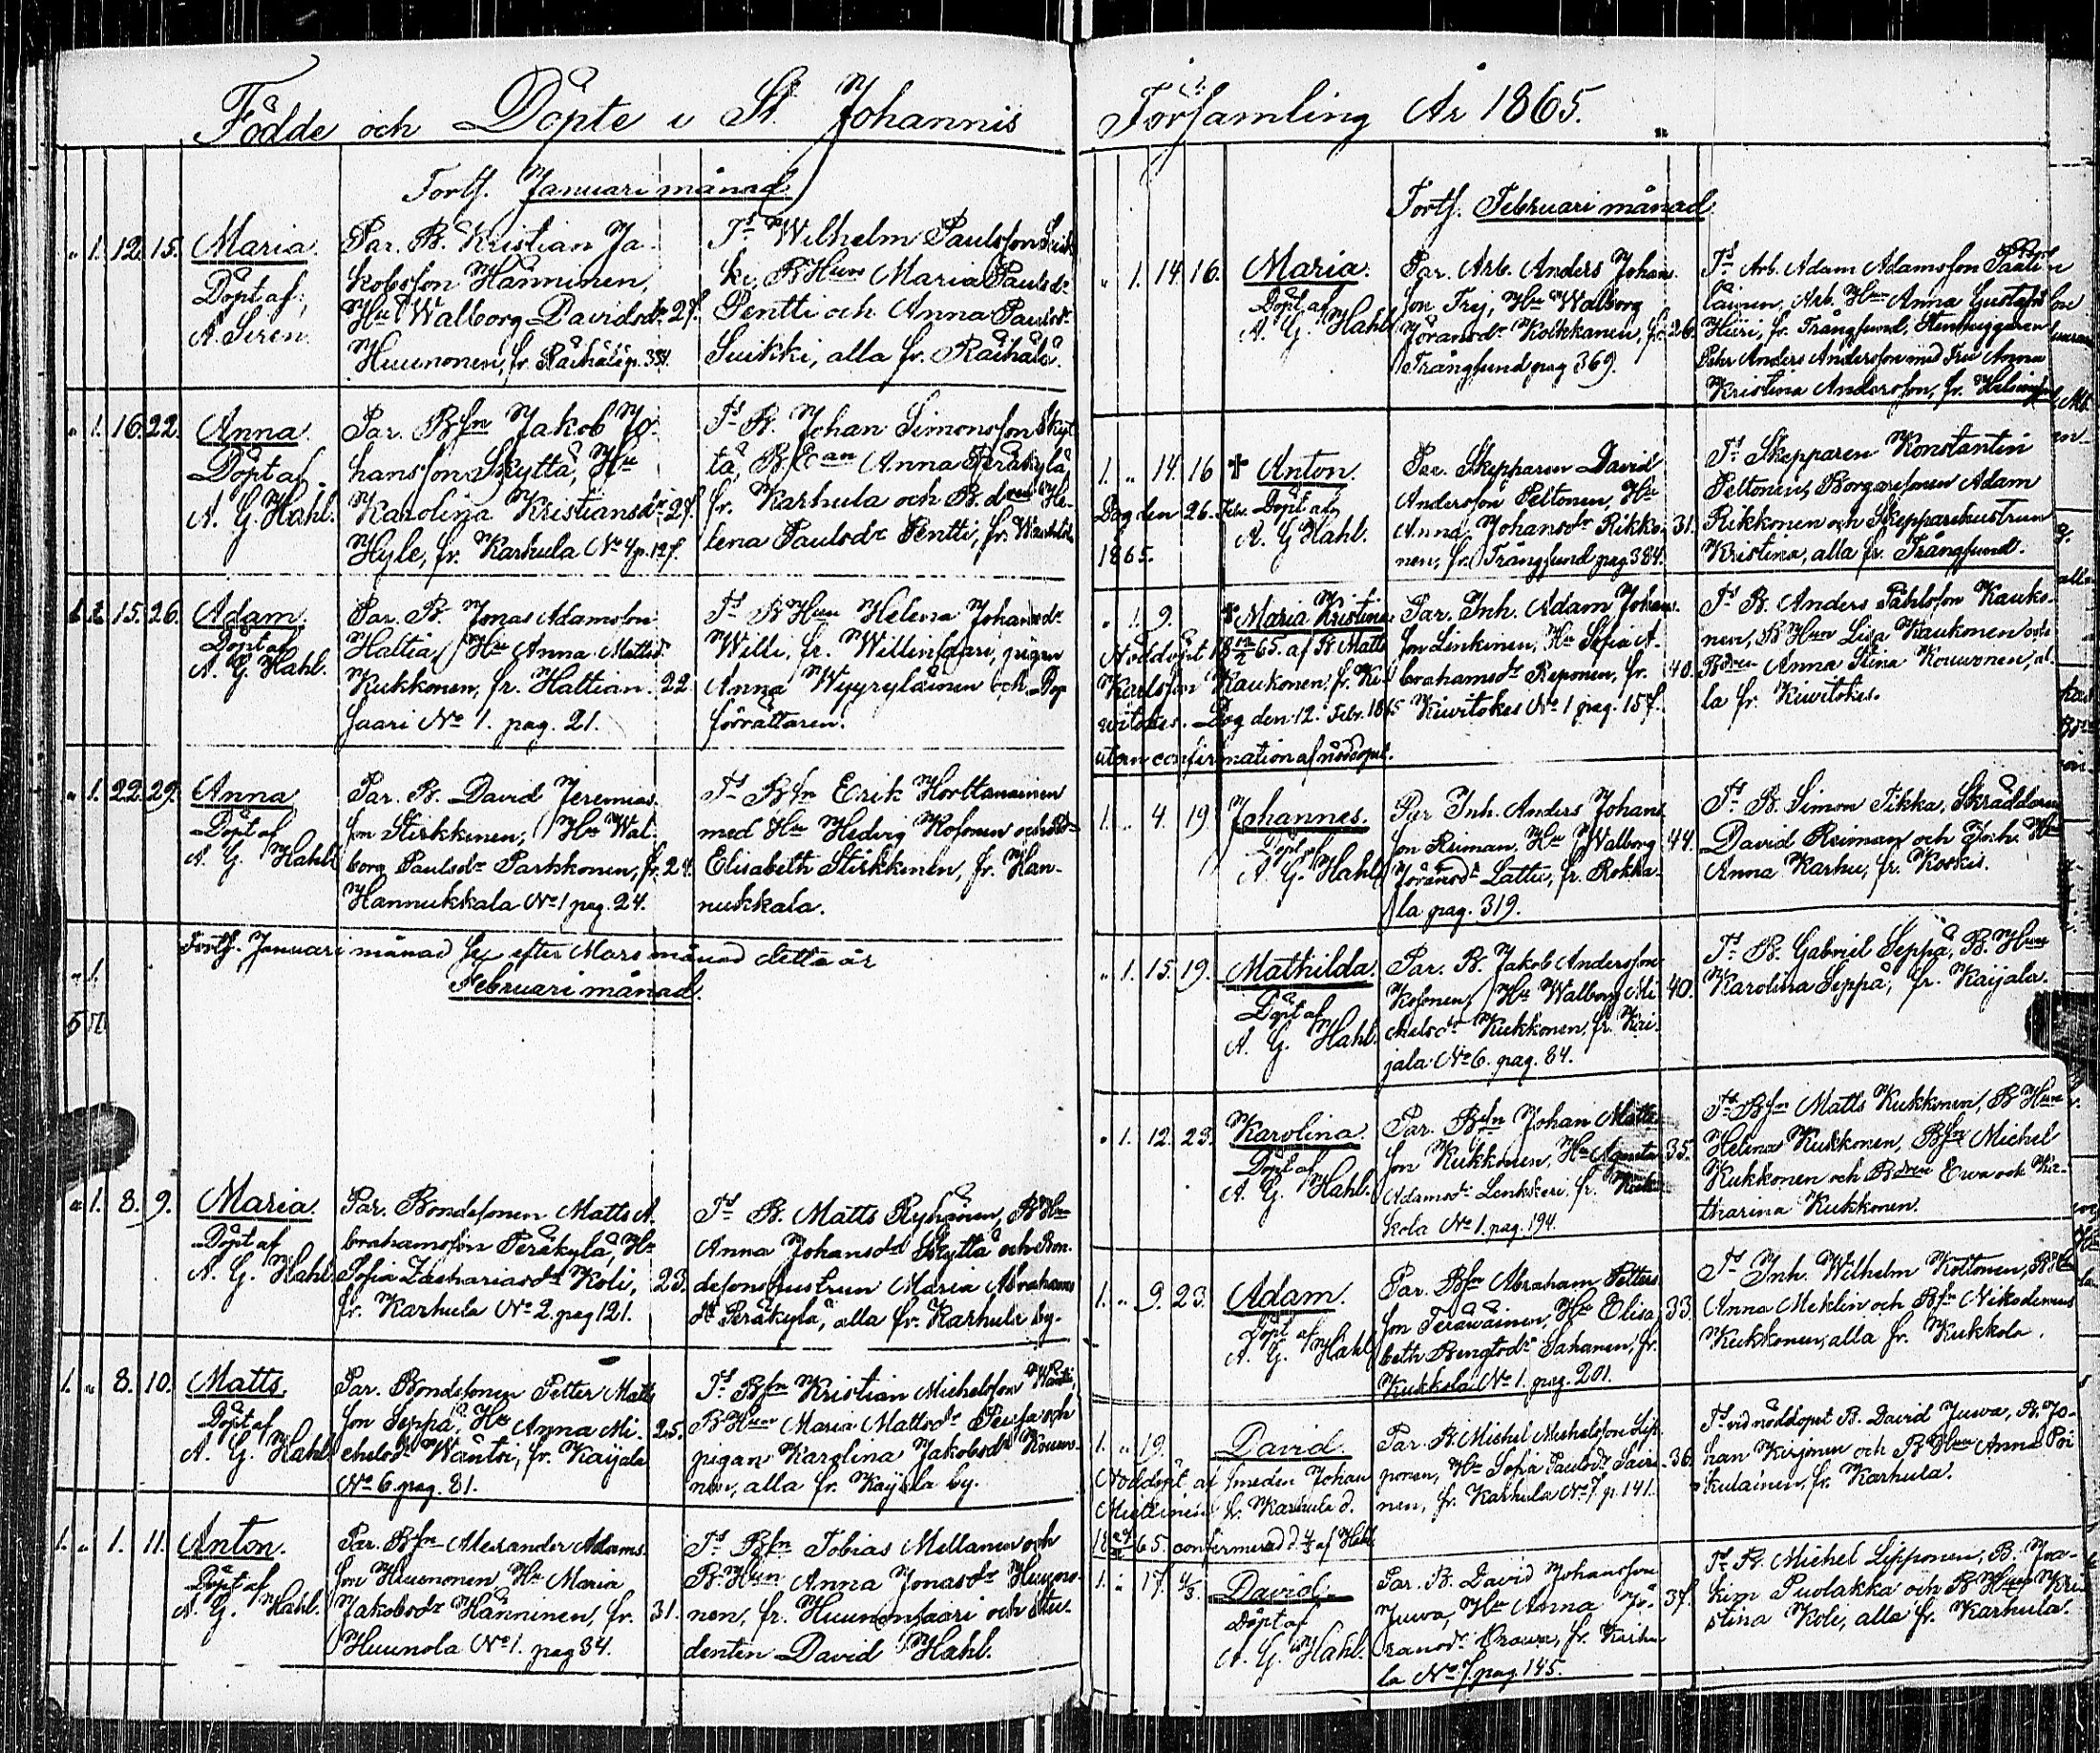 Födde och Döpte i St. Johannis
Forts. Januari månad
" 1. 12. 15. Maria.
Döpt af
A. Siren
Par. B. Kristian Ja-
kobsson Hänninen,
Hu Walborg Davidsdr 27.
Huunonen, fr. Räihälä p. 334.
Ts Wilhelm Paulsson Suik-
ki, B Hun Maria Paulsdr
Pentti och Anna Paulsdr
Suikki, alla fr. Räihälä.
" 1. 16. 22. Anna.
Döpt af
A. G. Hahl.
Par. Bsn Jakob Jo-
hansson Skyttä, Hu
Karolina Kristiansdr 27.
Hyle, fr. Karhula No 4 p. 127.
Ts B. Johan Simonsson Skyt-
tä, B. Ean Anna Peräkylä
fr. Karhula och B. dren He-
lena Paulsdr Pentti, fr.
15. 26. Adam.
Döpt af
A. G. Hahl.
Par. B. Jonas Adamsson
Haltia, Hu Anna Mattsdr
Kukkonen, fr. Haltian- 22
saari No 1. pag. 21.
Ts B Hun Helena Johansdr
Willi, fr. Willinsaari, pigan
Anna Wyyryläinen och Dop
förrättaren.
" 1. 22. 29. Anna
Döpt af
A. G. Hahl
Par. B. David Jeremias-
son Stirkkinen, Hu Wal-
borg Paulsdr Parkkonen, fr. 24.
Hannukkala No 1 pag. 24.
Ts Bsn Erik Horttanainen
med Hu Hedvig Kosonen och
Elisabeth Stirkkinen, fr. Han-
nukkala.
" 1. Forts. Januari månad se efter Mars månad detta år
Februari månad.
5 17.
" 1. 8. 9. Maria.
Döpt af
A. G. Hahl.
Par. Bondesonen Matts A-
brahamsson Peräkylä, Hu
Sofia Zachariasdr Koli, 23.
fr. Karhula No 2. pag 121.
Ts B. Matts Ryhänen, B Hu
Anna Johansdr Skyttä och Bon-
desonshustrun Maria Abrahams
dr Peräkylä, alla fr. Karhula by.
1. " 8. 10. Matts.
Döpt af
A. G. Hahl
Par. Bondesonen Petter Matts
son Seppä, Hu Anna Mi- 25.
chelsdr Wäntsi, fr. Kaijala
No 6 pag. 81.
Ts Bsn Kristian Michelsson Wäntsi
B Hun Maria Mattsdr Peusa och
pigan Karolina Jakobsdr Kouwo-
nen, alla fr. Kaijala by.
1. " 1. 11. Anton.
Döpt af
A. G. Hahl.
Par. Bsn Alexander Adams-
son Huunonen Hu Maria
Jakobsdr Hänninen, fr. 31.
Huunola No 1. pag 34.
Ts Bsn Tobias Mellanen och
B. Hun Anna Jonasdr Huuno-
nen, fr. Huunonsaari och Stu-
denten David Hahl.
Församling År 1865.
Forts. Februari månad
" 1. 14. 16. Maria.
Döpt af
A. G. Hahl
Par. Arb. Anders Johans-
son Trej, Hu Walborg
Göransdr Kolkkanen, fr. 26.
Trångsund pag 369.
Ts Arb. Adam Adamsson
läinen, Arb. Hun Anna Gustafsdr
Hiiri, fr. Trångsund, Stenhuggaren
Pehr Anders Andersson med Fru Anna
Kristina Andersson, fr.
1. " 14. 16 + Anton.
Dog den 26. Febr. Döpt af
A. G Hahl.
1865.
Par. Skepparen David
Andersson Peltonen, Hu
Anna Johansdr Rikko- 31.
nen, fr. Trångsund pag 384.
Ts Skepparen Konstantin
Peltonen, Borgaresonen Adam
Rikkonen och Skepparehustrun
Kristina, alla fr. Trångsund.
" 1. 9. + Maria Kristina.
Nöddöpt 18 12/2 65. af B. Matts
Karlsson Kaukonen, fr. Ki-
witokes. Dog den 12. Febr. 1865
utan confirmation af nöddopet.
Par. Inh. Adam Johans-
son Linkinen, Hu Sofia A-
brahamsdr Reponen, fr. 40.
Kiwitokes No 1 pag. 157.
Ts B. Anders Påhlsson Kauko-
nen, B Hun Lisa Kaukonen och
Bdren Anna Stina Kouwonen, al-
la fr. Kiwitokes.
1. " 4. 19. Johannes.
Döpt af
A. G. Hahl
Par Inh. Anders Johans
son Reiman, Hu Walborg 44.
Göransdr Lattu, fr. Rokka-
la pag. 319.
Ts B. Simon Tikka, Skräddaren
David Reiman och Inh. Hu
Anna Karhu, fr. Koskis.
" 1. 15. 19. Mathilda.
Döpt af
A. G. Hahl.
Par. B. Jakob Andersson
Kosonen, Hu Walborg Mi- 40.
chelsdr Kukkonen, fr. Kai-
jala No 6. pag. 84.
Ts B. Gabriel Seppä, B. Hun
Karolina Seppä, fr. Kaijala.
" 1. 12. 23. Karolina.
Döpt af
A. G. Hahl.
Par. Bsn Johan Matts-
son Kukkonen, Hu Agneta 35.
Adamsdr Lenkkeri fr. Kuk-
kola No 1. pag. 194.
Ts Bsn Matts Kukkonen, B Hun
Helena Kukkonen, Bsn Michel
Kukkonen och Bdren Ewa och Ka-
tharina Kukkonen.
1. " 9. 23. Adam.
Döpt af
A. G. Hahl
Par. Bsn Abraham Petters
son Teräwäinen, Hu Elisa- 33.
beth Bengtsdr Sahanen, fr.
Kukkola No 1. pag. 201.
Ts Inh. Wilhelm Kottonen, B.
Anna Meklin och Bsn Nikodemus
Kukkonen, alla fr. Kukkola.
1. " 19. David.
Nöddöpt af smeden Johan
Miettinen fr. Karhula d.
65. confirmerad d. 4/3 af Hahl
Par. B. Michel Michelsson Lip-
ponen, Hu Sofia Paulsdr Sairi- 36.
nen, fr. Karhula No 7. p. 141.
Ts vid nöddopet B. David Juwa, B. Jo-
han Kirjonen och B Hun Anna Poi-
kulainen, fr. Karhula.
1. " 17. 4/3 David.
Döpt af
A. G. Hahl.
Par. B. David Johansson
Juwa, Hu Anna Gö- 37.
ransdr Orawa, fr. Karhu-
la No 7. pag. 145.
Ts B. Michel Lipponen, B. Joa-
kim Puolakka och B Hun Kri-
stina Koli, alla fr. Karhula.